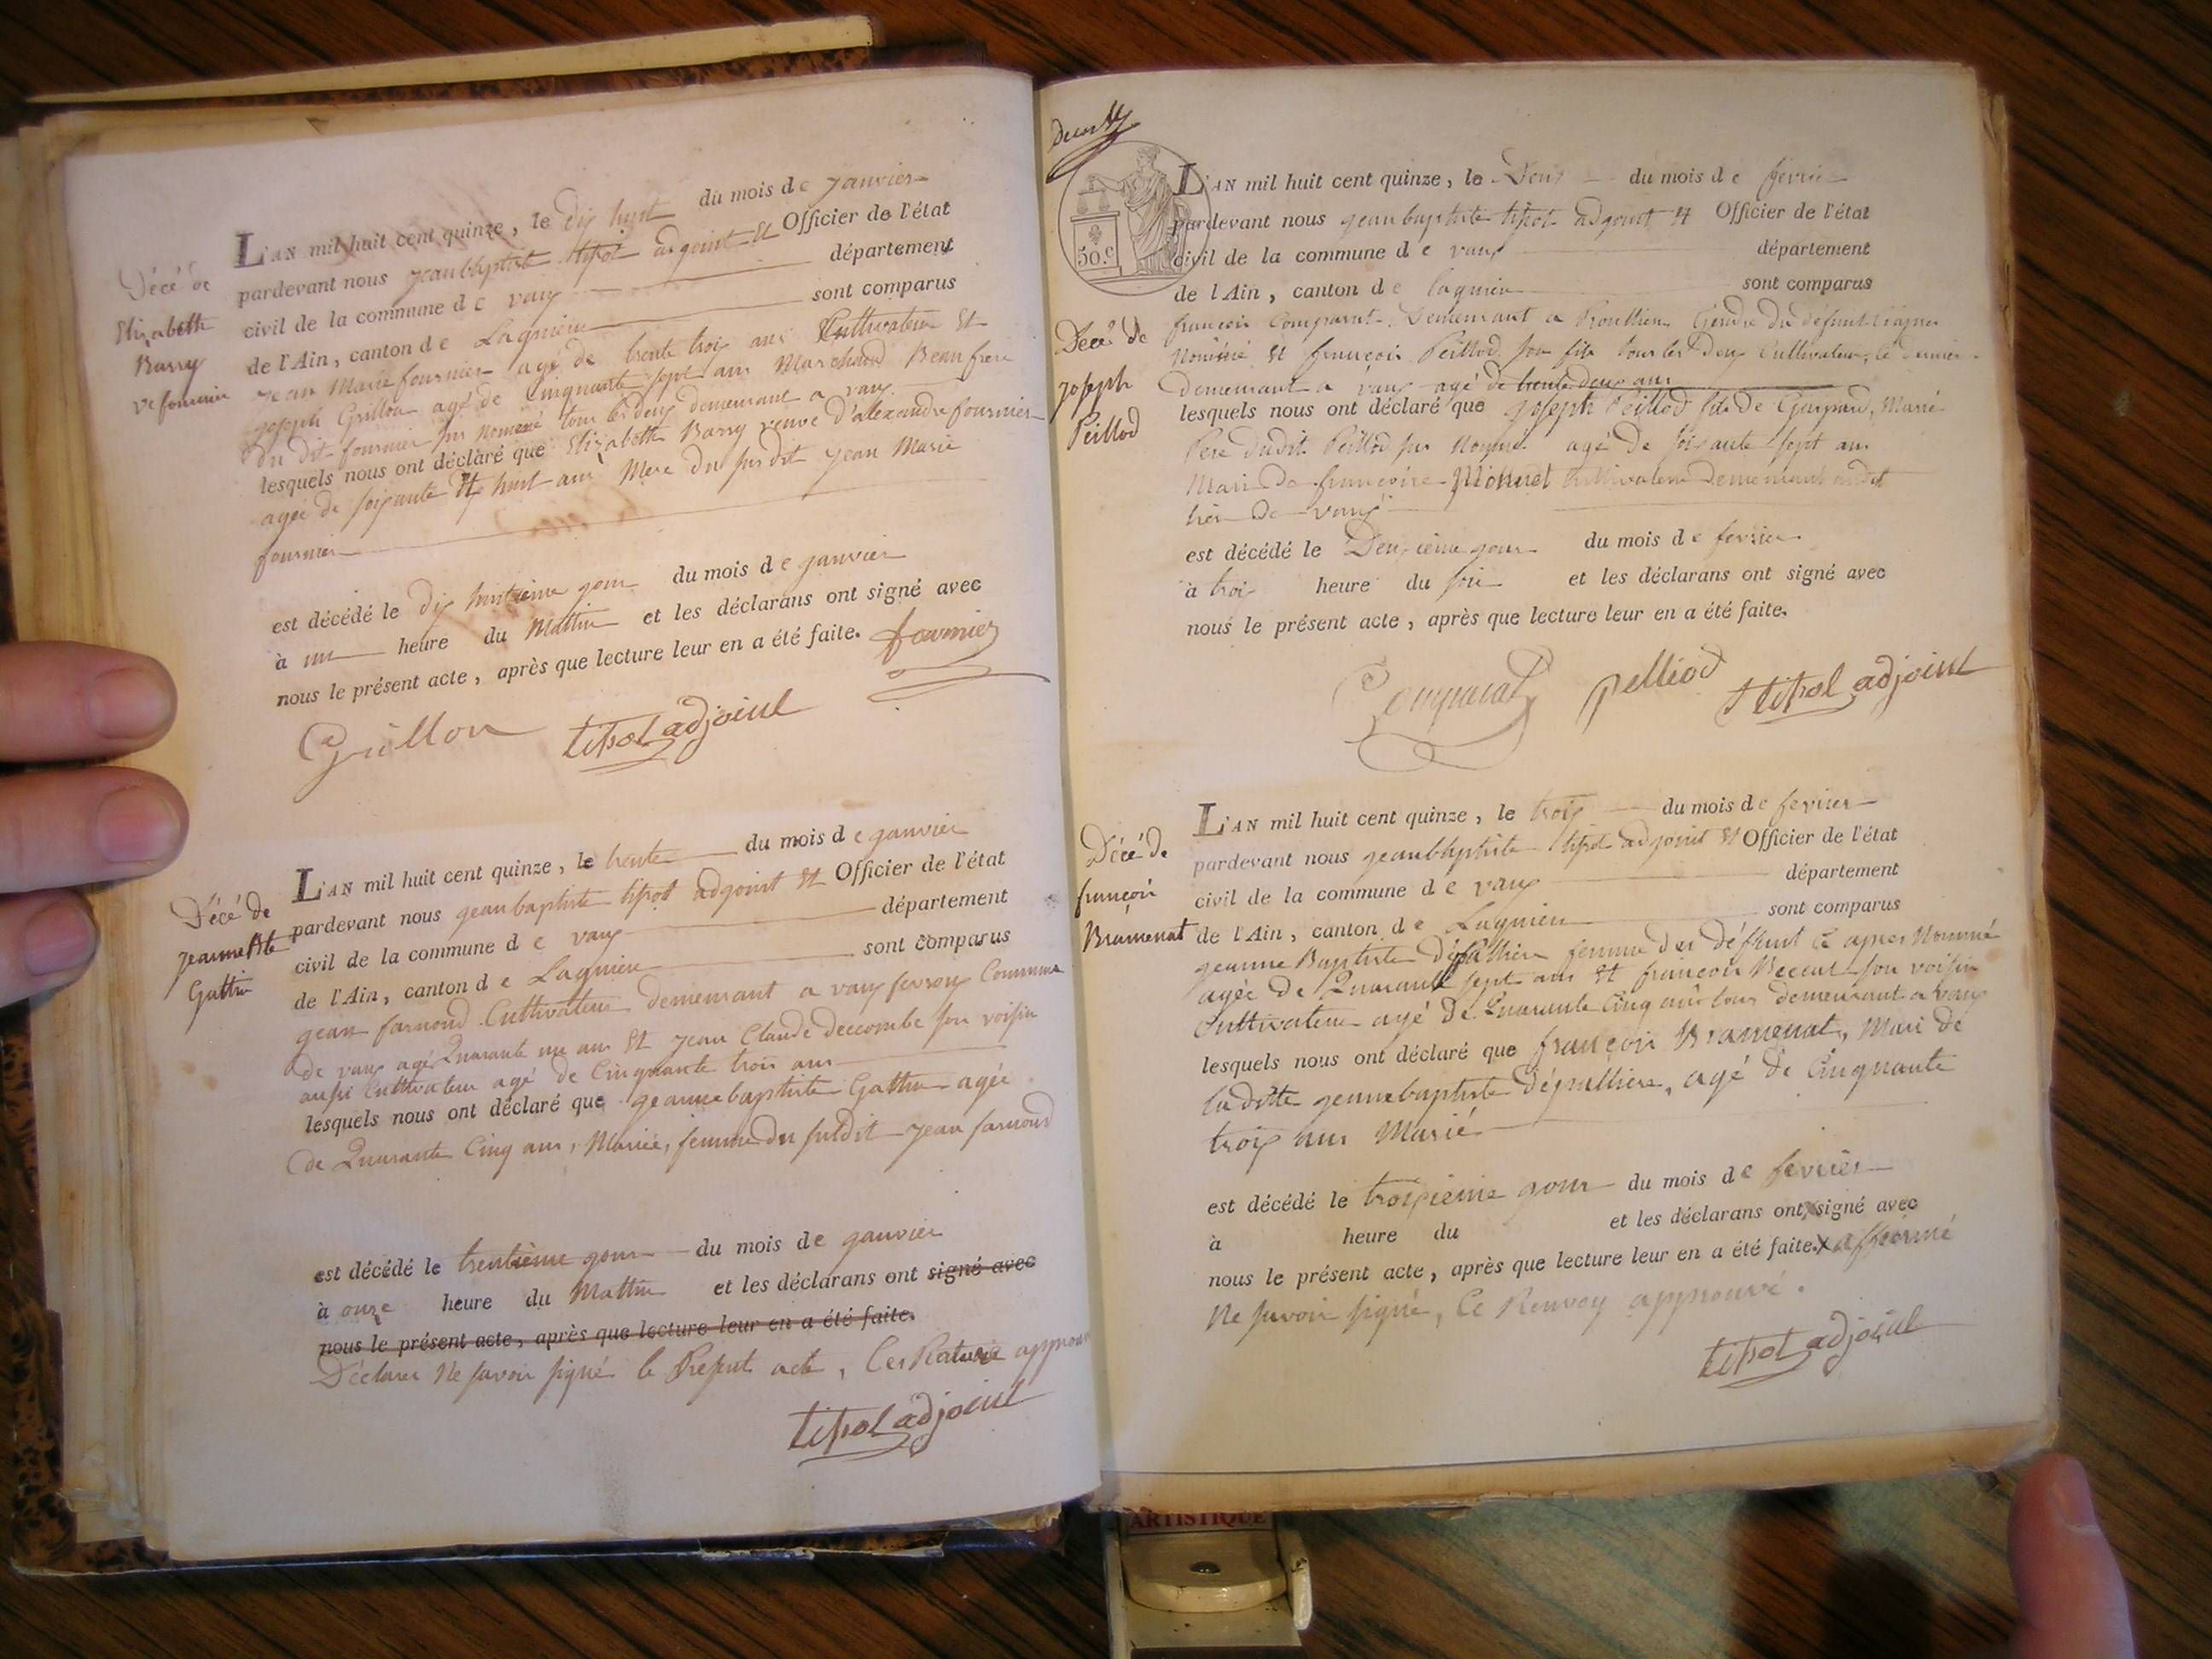 Décé de
Elizabeth
Barry
Ve fournier
L'AN mil huit cent quinze, le dix huit du mois de janvier
pardevant nous jeanbaptiste tipot adjoint et Officier de l'état
civil de la commune de vaux département
de l'Ain, canton de Lagnieu sont comparus
jean Marie fournier agé de trente trois ans Cultivateur et
joseph Grillon agé de Cinquante sept ans Marchand Beaufrere
du dit fournier sus nommé tous les deux demeurant a vaux
lesquels nous ont déclaré que Elizabeth Barry veuve d'alexandre fournier
agée de soixante et huit ans Mere du susdit jean Marie
fournier
est décédé le dix huitieme jour du mois de janvier
à un heure du Mattin et les déclarans ont signé avec
nous le présent acte, après que lecture leur en a été faite. fournier
Grillon tipot adjoint
Décé de
jeanne Bte
Gattin
L'AN mil huit cent quinze, le trente du mois de janvier
pardevant nous jeanbaptiste tipot adjoint et Officier de l'état
civil de la commune de vaux département
de l'Ain, canton de Lagnieu sont comparus
jean farnoud Cultivateur demeurant a vaux fevroux Commune
de vaux agé Quarante un ans et jean Claude deccombe son voisin
aussi Cultivateur agé de Cinquante trois ans
lesquels nous ont déclaré que jeannebaptiste Gattin agée
de Quarante Cinq ans, Mariée, femme du susdit jean farnoud
est décédé le trentième jour du mois de janvier
à onze heure du Mattin et les déclarans ont signé avec
nous le présent acte, après que lecture leur en a été faite.
Déclarer Ne savoir signé le Présent acte, Les Rature approuvé
tipot adjoint
50.c
Décé de
joseph
Peillod
L'AN mil huit cent quinze, le Deux du mois de fevrier
pardevant nous jeanbaptiste tipot adjoint et Officier de l'état
civil de la commune de vaux département
de l'Ain, canton de lagnieu sont comparus
françois Comparat Demeurant a Gendre du défunt ci apres
Nommé et françois Peillod son fils tous les Deux Cultivateur, le dernier
demeurant a vaux agé de trente deux ans
lesquels nous ont déclaré que joseph Peillod fils de Gaspard, Marié
Pere dudit Peillod sus Nommé agé de soixante sept ans
Mari de françoise Monnet Cultivateur demeurant audit
lieu de vaux
est décédé le Deuxieme jour du mois de fevrier
à trois heure du soir et les déclarans ont signé avec
nous le présent acte, après que lecture leur en a été faite.
Comparat pelliod tipot adjoint
Décé de
françois
Bramenat
L'AN mil huit cent quinze, le trois du mois de fevrier
pardevant nous jeanbaptiste tipot adjoint et Officier de l'état
civil de la commune de vaux département
de l'Ain, canton de Lagnieu sont comparus
jeanne Baptiste dépalliere femme du défunt ci apres Nommé
agée de Quarante sept ans et françois son voisin
Cultivateur agé de Quarante Cinq ans tous demeurant a vaux
lesquels nous ont déclaré que françois Bramenat, Mari de
laditte jeannebaptiste dépalliere, agé de Cinquante
trois ans Marié
est décédé le troisieme jour du mois de fevrier
à heure du et les déclarans ont signé avec
nous le présent acte, après que lecture leur en a été faite. x affirmé
Ne savoir signé, Le Renvoy approuvé.
tipot adjoint
ARTISTIQUE